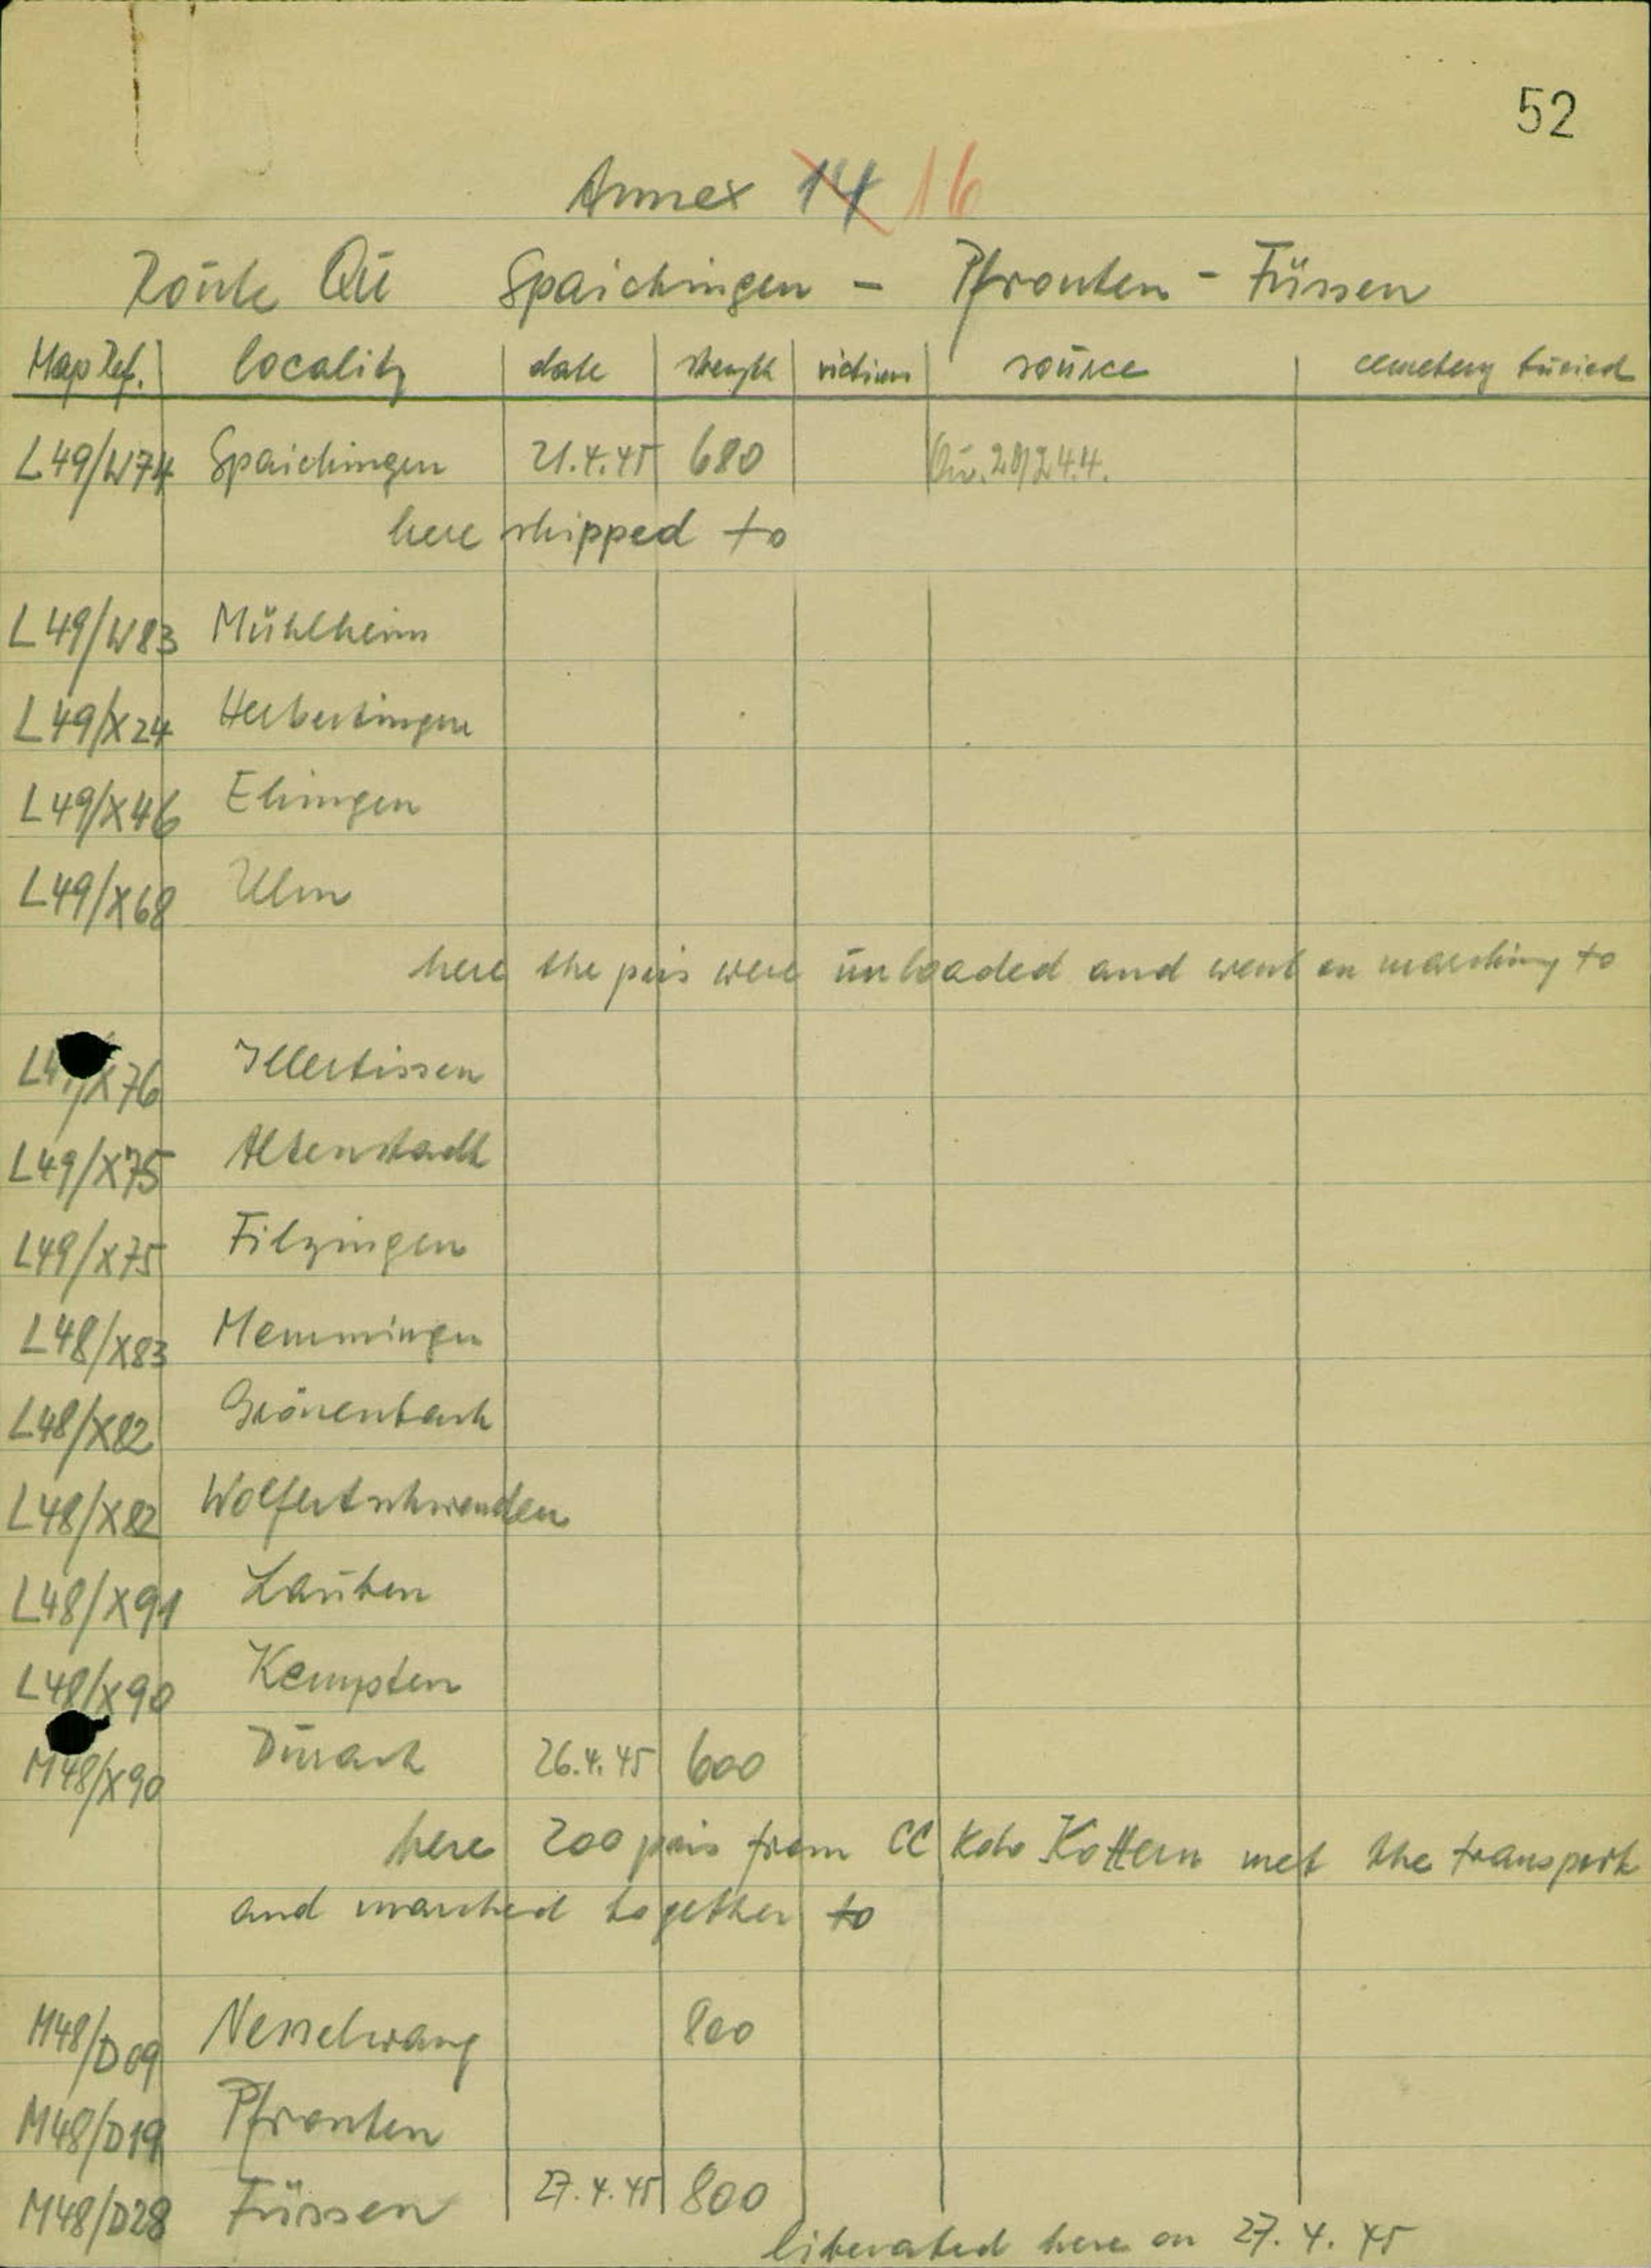 52
Annex 14 16
Route Qu Spaichingen - Pfronten - Füssen
Map Ref. locality date strength victims source cemetery buried
L49/W74 Spaichingen 21.4.45 680 Qu.
here shipped to
L49/W83 Mühlheim
L49/X24 Herbertingen
L49/X46 Ehingen
L49/X68 Ulm
here the pris were unloaded and went on marching to
X76 Illertissen
L49/X75 Altenstadt
L49/X75 Filzingen
L48/X83 Memmingen
L48/X82 Grönenbach
L48/X82 Wolfertschwenden
L48/X91 Lauben
L48/X90 Kempten
M48/X90 Durach 26.4.45 600
here 200 pris from CC Kdo Kottern met the transport
and marched together to
M48/D09 Nesselwang 800
M48/D19 Pfronten
M48/D28 Füssen 27.4.45 800
liberated here on 27.4.45